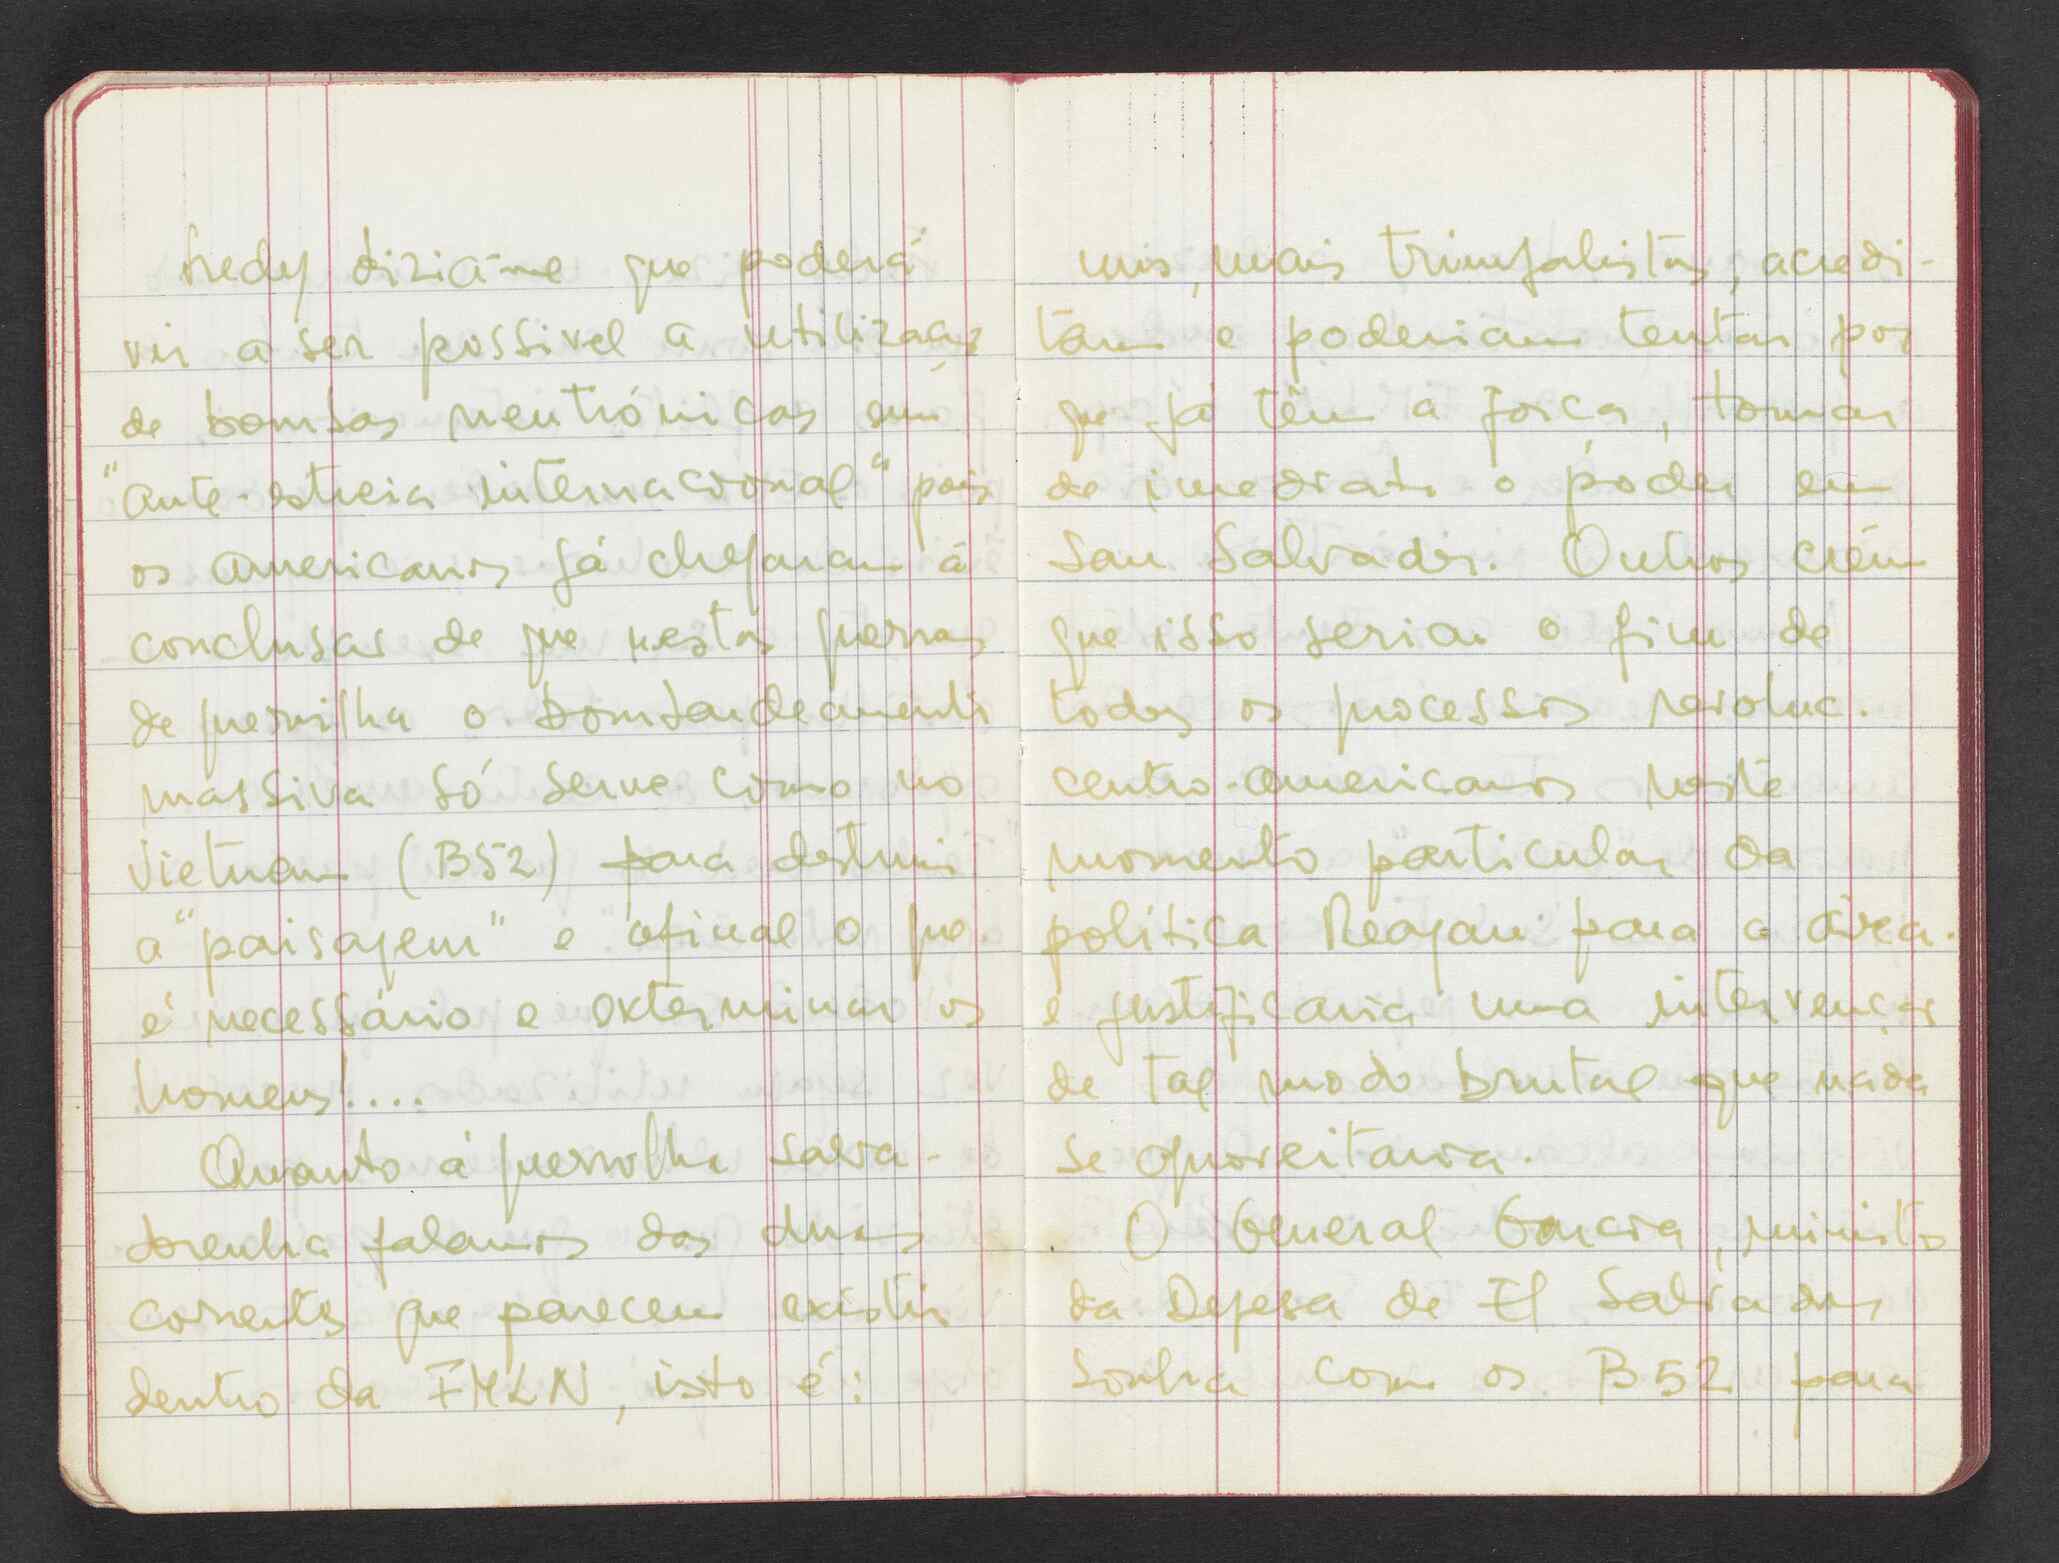 Fredy dizia-me que poderá
vir a ser possivel a utilização
de bombas neutrónicas em
"ante-estreia internacional" pois
os americanos já chegaram á
conclusão de que nestas guerras
de guerrilha o bombardeamento
massiva só serve como no
Vietnam (B52) para destruir
a "paisagem" e afinal o que
é necessário e exterminar os
homens!....
Quanto á guerrilha salva-
dorenha falamos das duas
correntes que parecem existir
dentro da FMLN, isto é:
uns, mais triunfalistas, acredi-
tam e poderiam tentar por
que já têm a força, tomar
de imediato o poder em
San Salvador. Outros crêm
que isso seria o fim de
todos os processos revoluc.
centro-americanos neste
momento particular da
politica Reagan para a área.
e justificaria uma intervenção
de tal modo brutal que nada
se aproveitaria.
O General Garcia, ministro
da Defesa de El Salvador
sonha com os B52 para